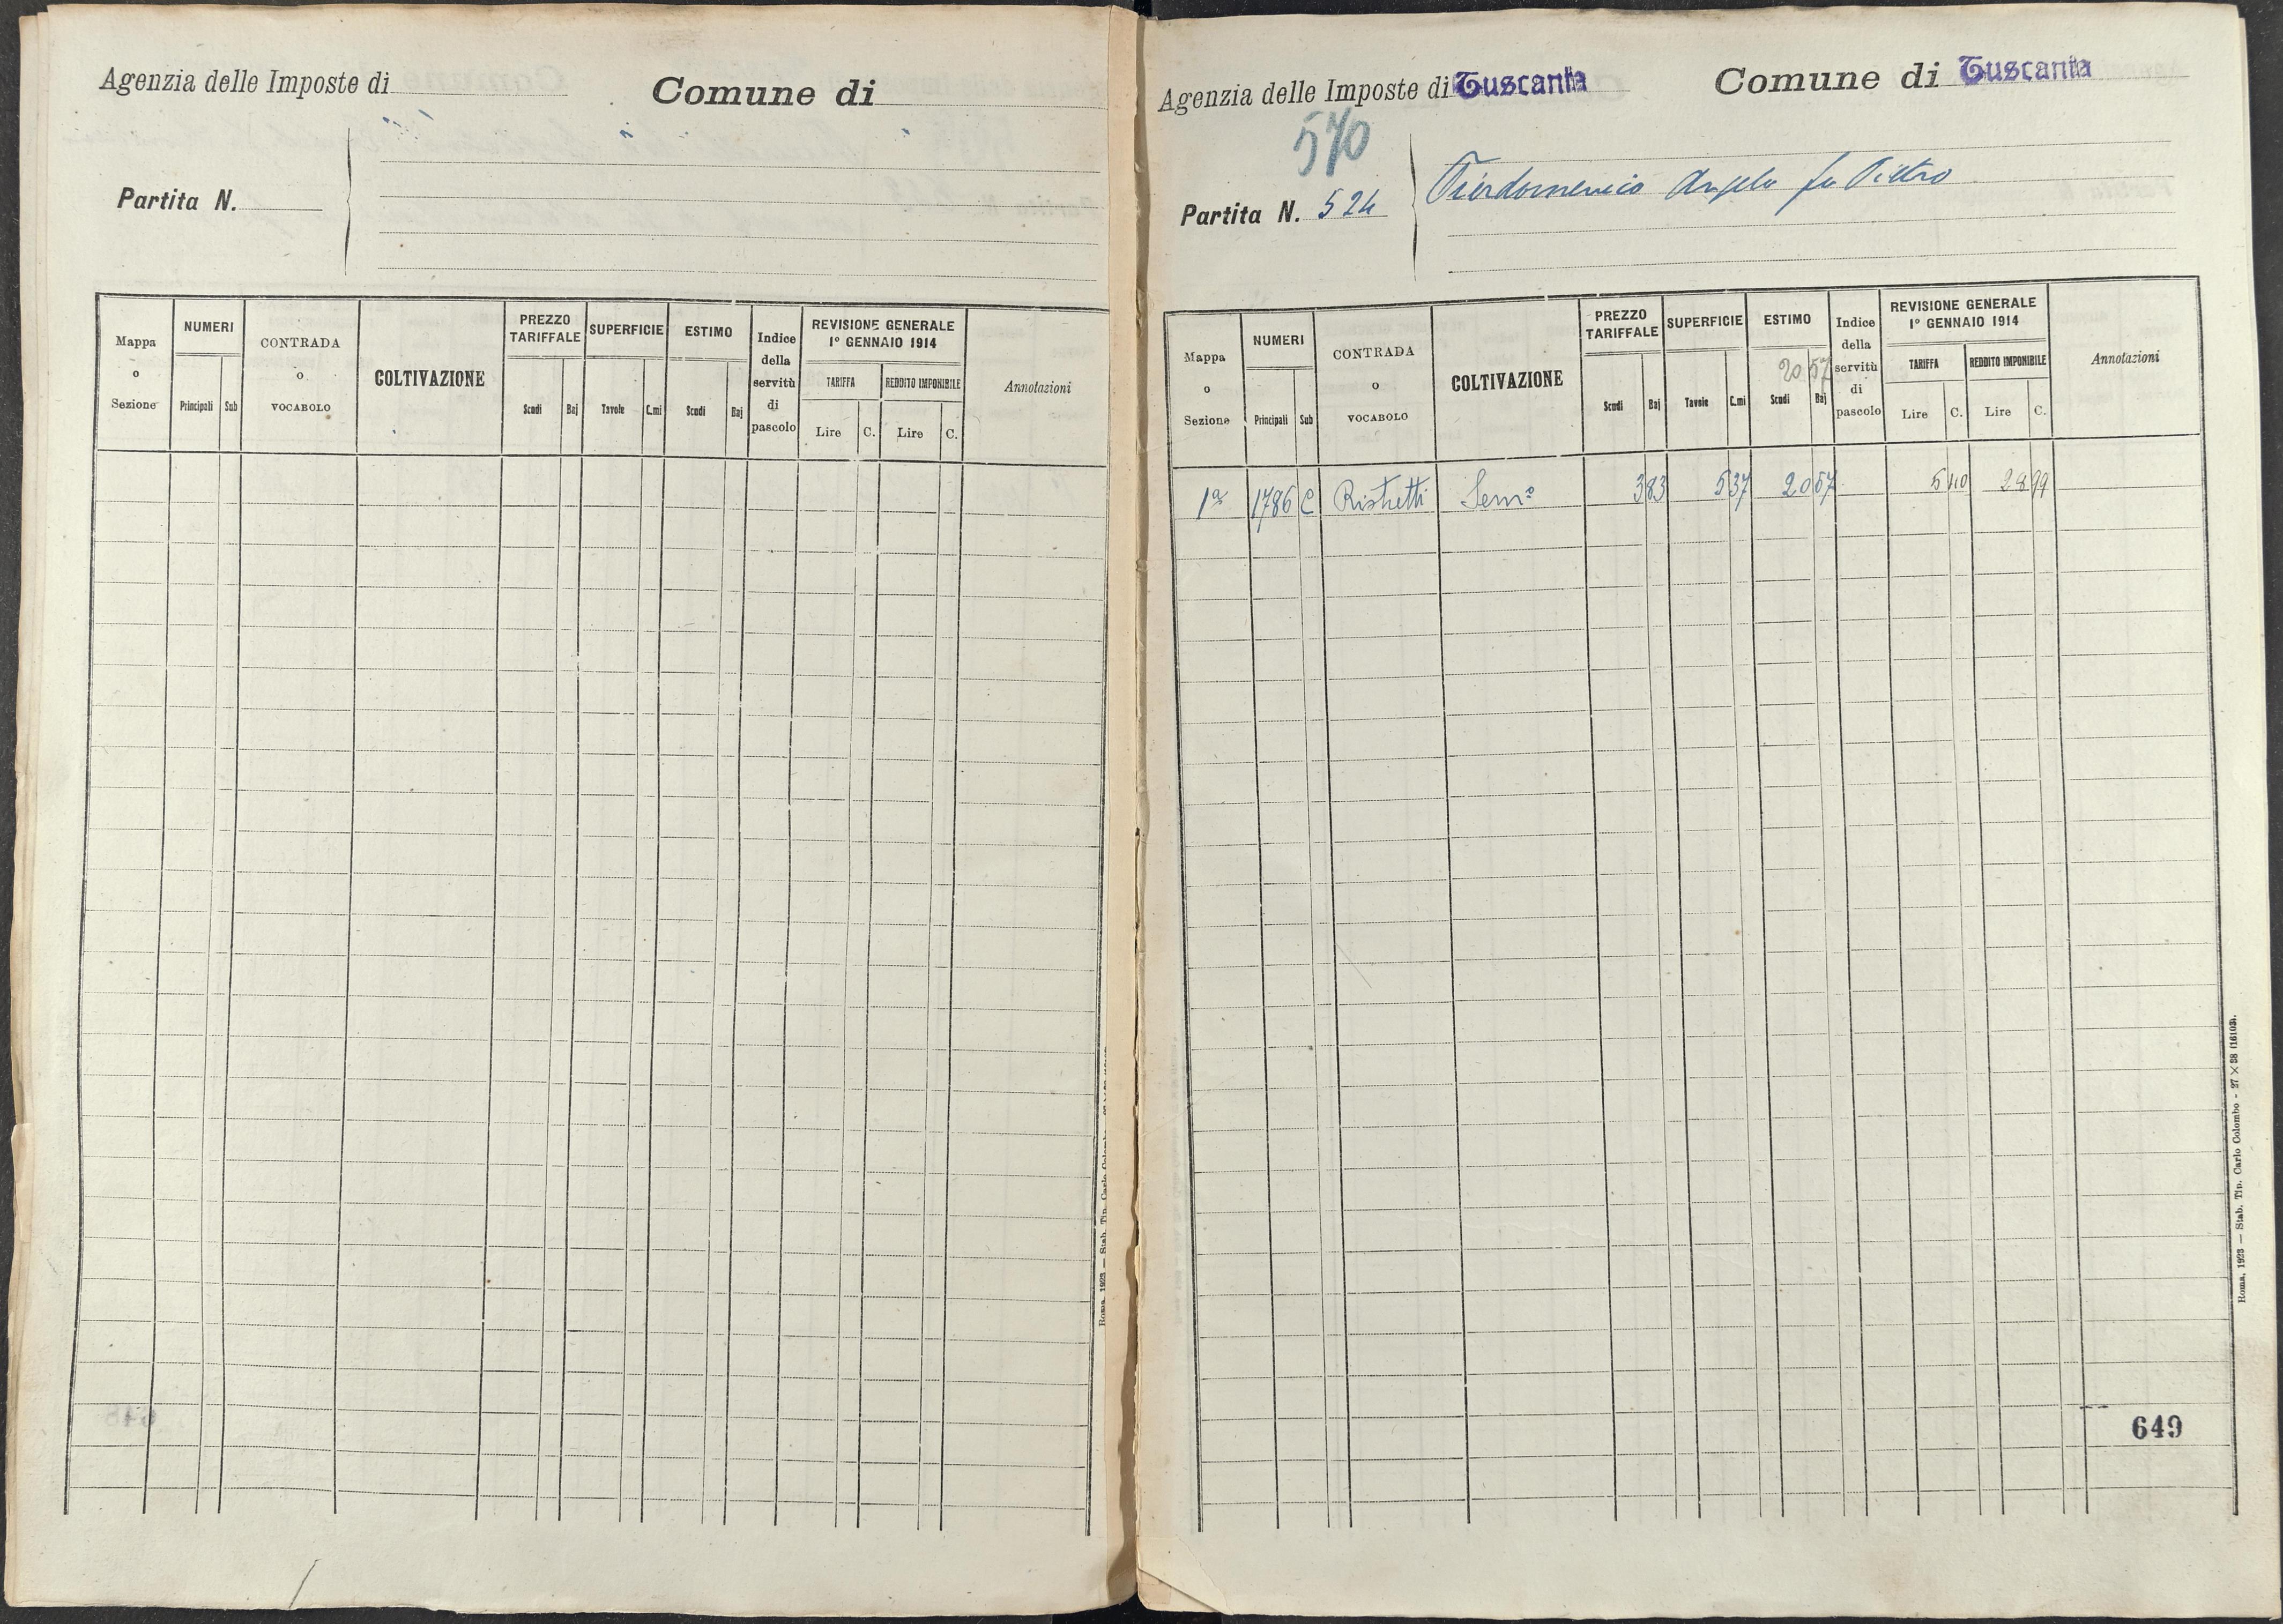 Agenzia delle Imposte di
Comune di
Partita N.
Mappa o Sezione
NUMERI
Principali Sub
CONTRADA o VOCABOLO
COLTIVAZIONE
PREZZO TARIFFALE
Scudi Baj
SUPERFICIE
Tavole C.mi
ESTIMO
Scudi Baj
Indice della servitù di pascolo
REVISIONE GENERALE
1° GENNAIO 1914
TARIFFA
Lire C.
REDDITO IMPONIBILE
Lire C.
Annotazioni
Agenzia delle Imposte di Tuscania
Comune di Tuscania
570
Partita N. 524
Fiordomenico Angelo fu Pietro
Mappa o Sezione
NUMERI
Principali Sub
CONTRADA o VOCABOLO
COLTIVAZIONE
PREZZO TARIFFALE
Scudi Baj
SUPERFICIE
Tavole C.mi
ESTIMO
20 57
Scudi Baj
Indice della servitù di pascolo
REVISIONE GENERALE
1° GENNAIO 1914
TARIFFA
Lire C.
REDDITO IMPONIBILE
Lire C.
Annotazioni
1a 1786 C Ristretti Sem° 3 83 5 37 20 57 5 40 28 99
649
Roma, 1923 — Stab. Tip. Carlo Colombo - 27 × 38 (16103).